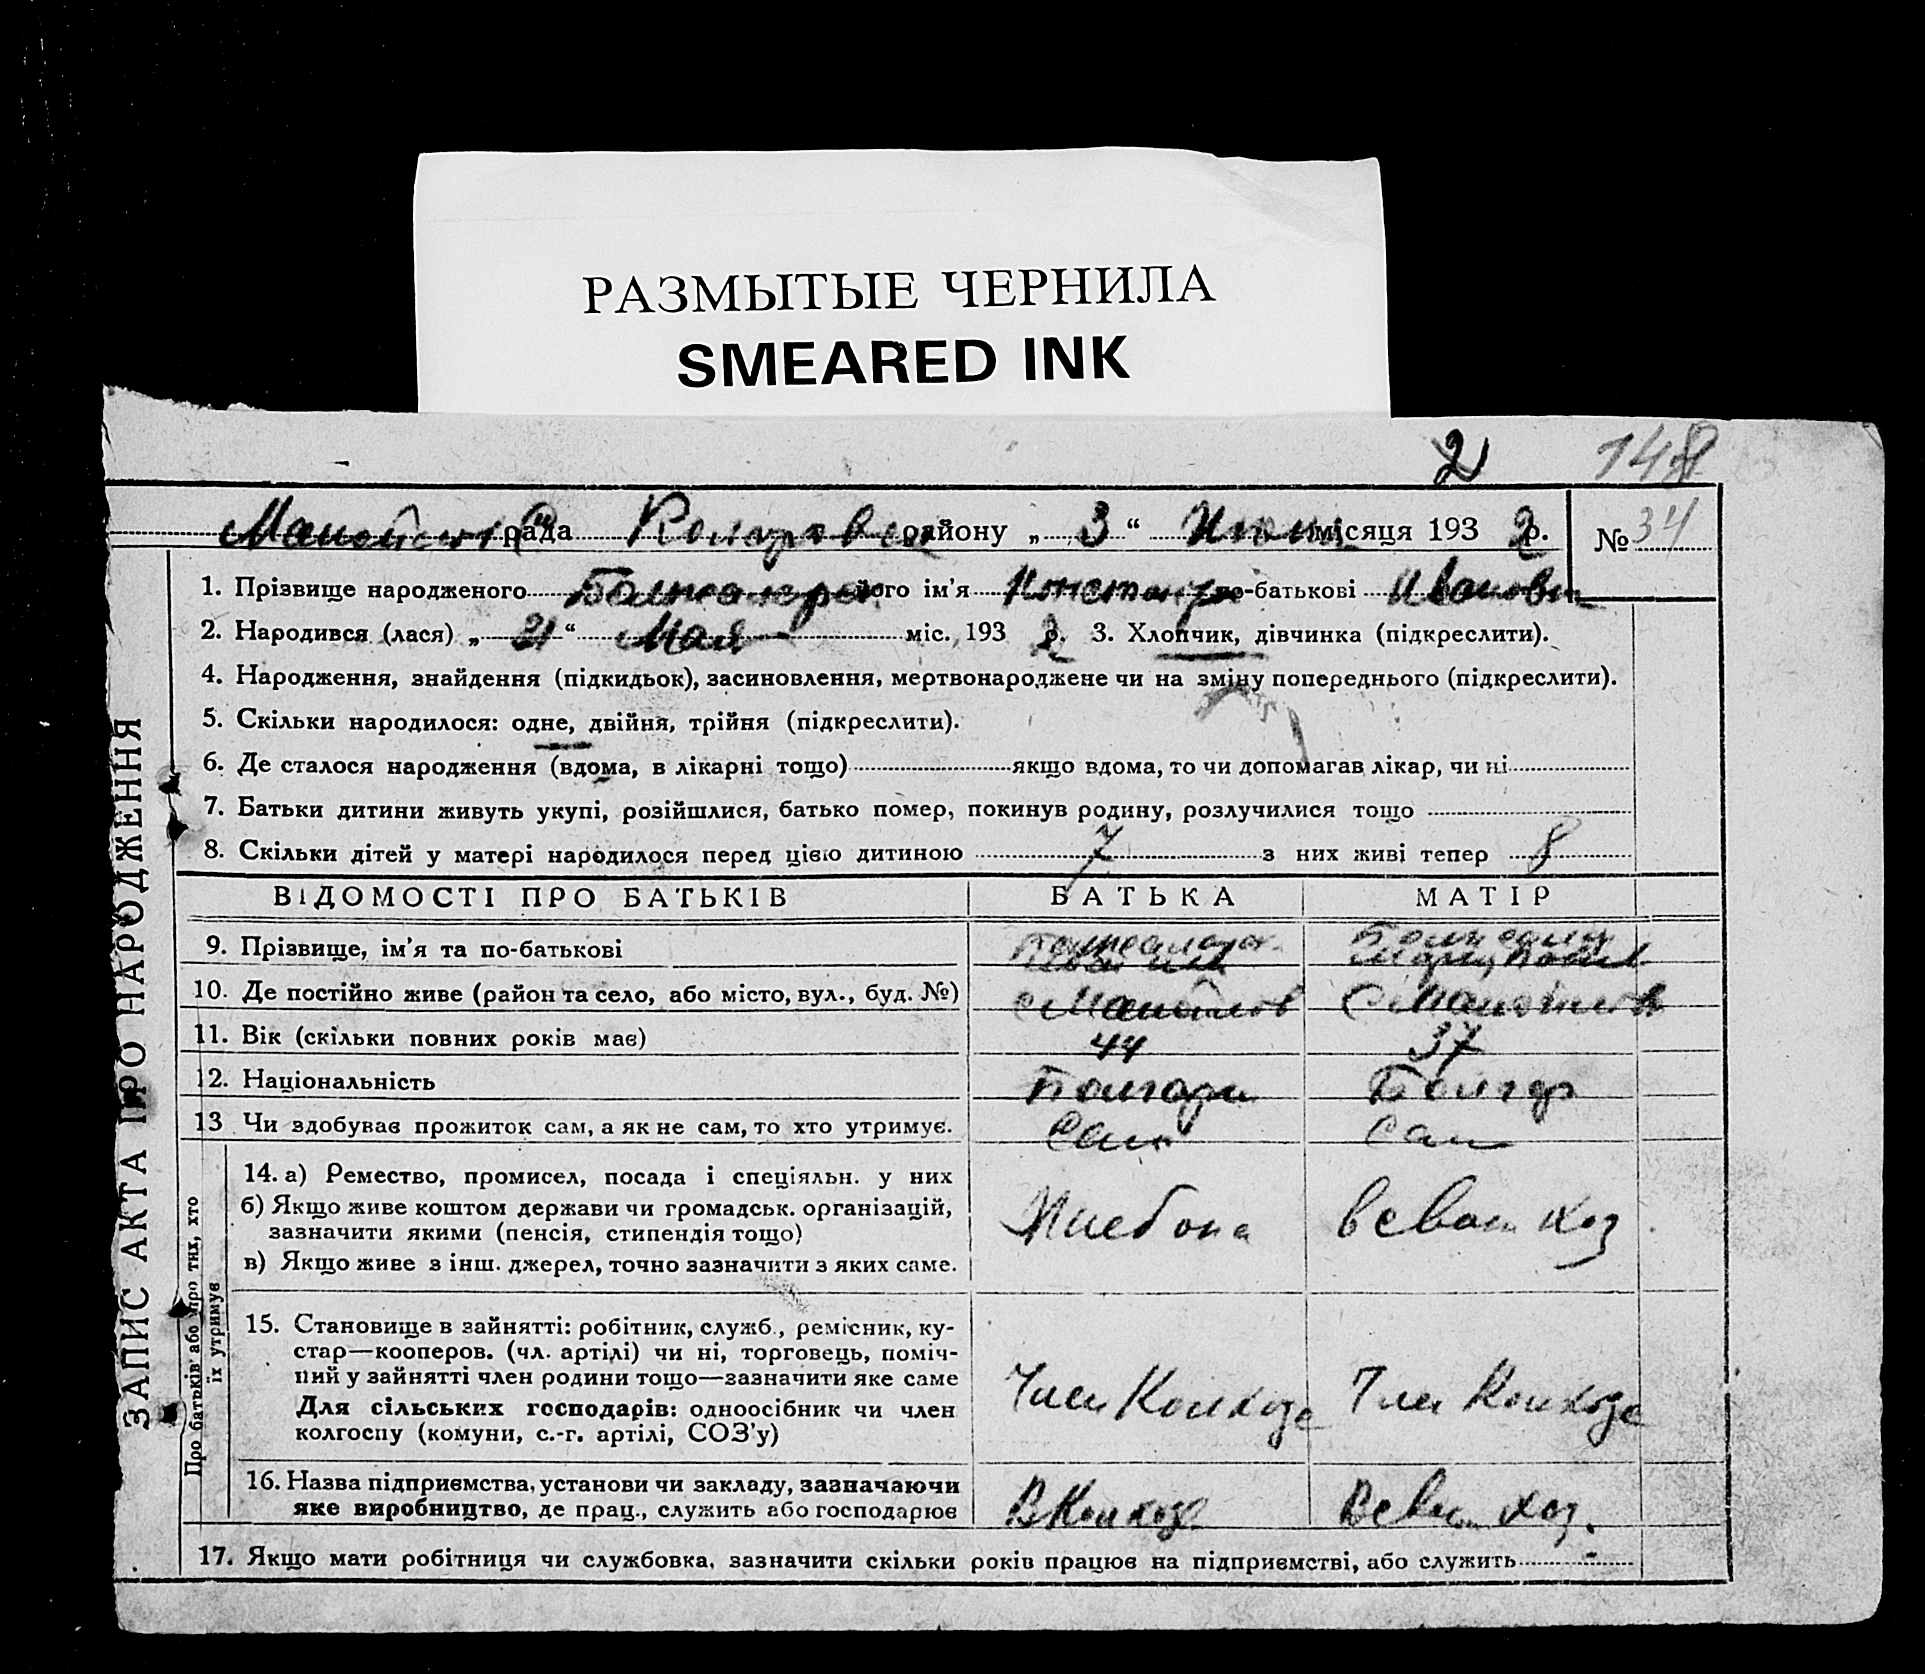 РАЗМЫТЫЕ ЧЕРНИЛА
SMEARED INK
2 148
рада району „ 3 “ місяця 193 2 р. № 34
1. Прізвище народженого його ім'я по-батькові Иванович
2. Народився (лася) „ 21 “ Мая міс. 193 2 р. 3. Хлопчик, дівчинка (підкреслити).
4. Народження, знайдення (підкидьок), засиновлення, мертвонароджене чи на зміну попереднього (підкреслити).
5. Скільки народилося: одне, двійня, трійня (підкреслити).
6. Де сталося народження (вдома, в лікарні тощо) якщо вдома, то чи допомагав лікар, чи ні
7. Батьки дитини живуть укупі, розійшлися, батько помер, покинув родину, розлучилися тощо
8. Скільки дітей у матері народилося перед цією дитиною 7 з них живі тепер 8
ВІДОМОСТІ ПРО БАТЬКІВ БАТЬКА МАТІР
9. Прізвище, ім'я та по-батькові
10. Де постійно живе (район та село, або місто, вул., буд. №)
11. Вік (скільки повних років має) 44 37
12. Національність Болгари Болгар
13 Чи здобував прожиток сам, а як не сам, то хто утримує. Сам Сам
14. а) Ремество, промисел, посада і спеціяльн. у них
б) Якщо живе коштом держави чи громадськ. організацій,
зазначити якими (пенсія, стипендія тощо)
в) Якщо живе з інш. джерел, точно зазначити з яких саме.
15. Становище в зайнятті: робітник, служб., ремісник, ку-
стар—кооперов. (чл. артілі) чи ні, торговець, поміч-
ний у зайнятті член родини тощо—зазначити яке саме
Для сільських господарів: одноосібник чи член
колгоспу (комуни, с.-г. артілі, СОЗ'у)
Член Колхоза Член Колхоза
16. Назва підприємства, установи чи закладу, зазначаючи
яке виробництво, де прац., служить або господарює
В Колхозе
17. Якщо мати робітниця чи службовка, зазначити скільки років працює на підприємстві, або служить
ЗАПИС АКТА ПРО НАРОДЖЕННЯ
Про батьків або про тих, хто
їх утримує